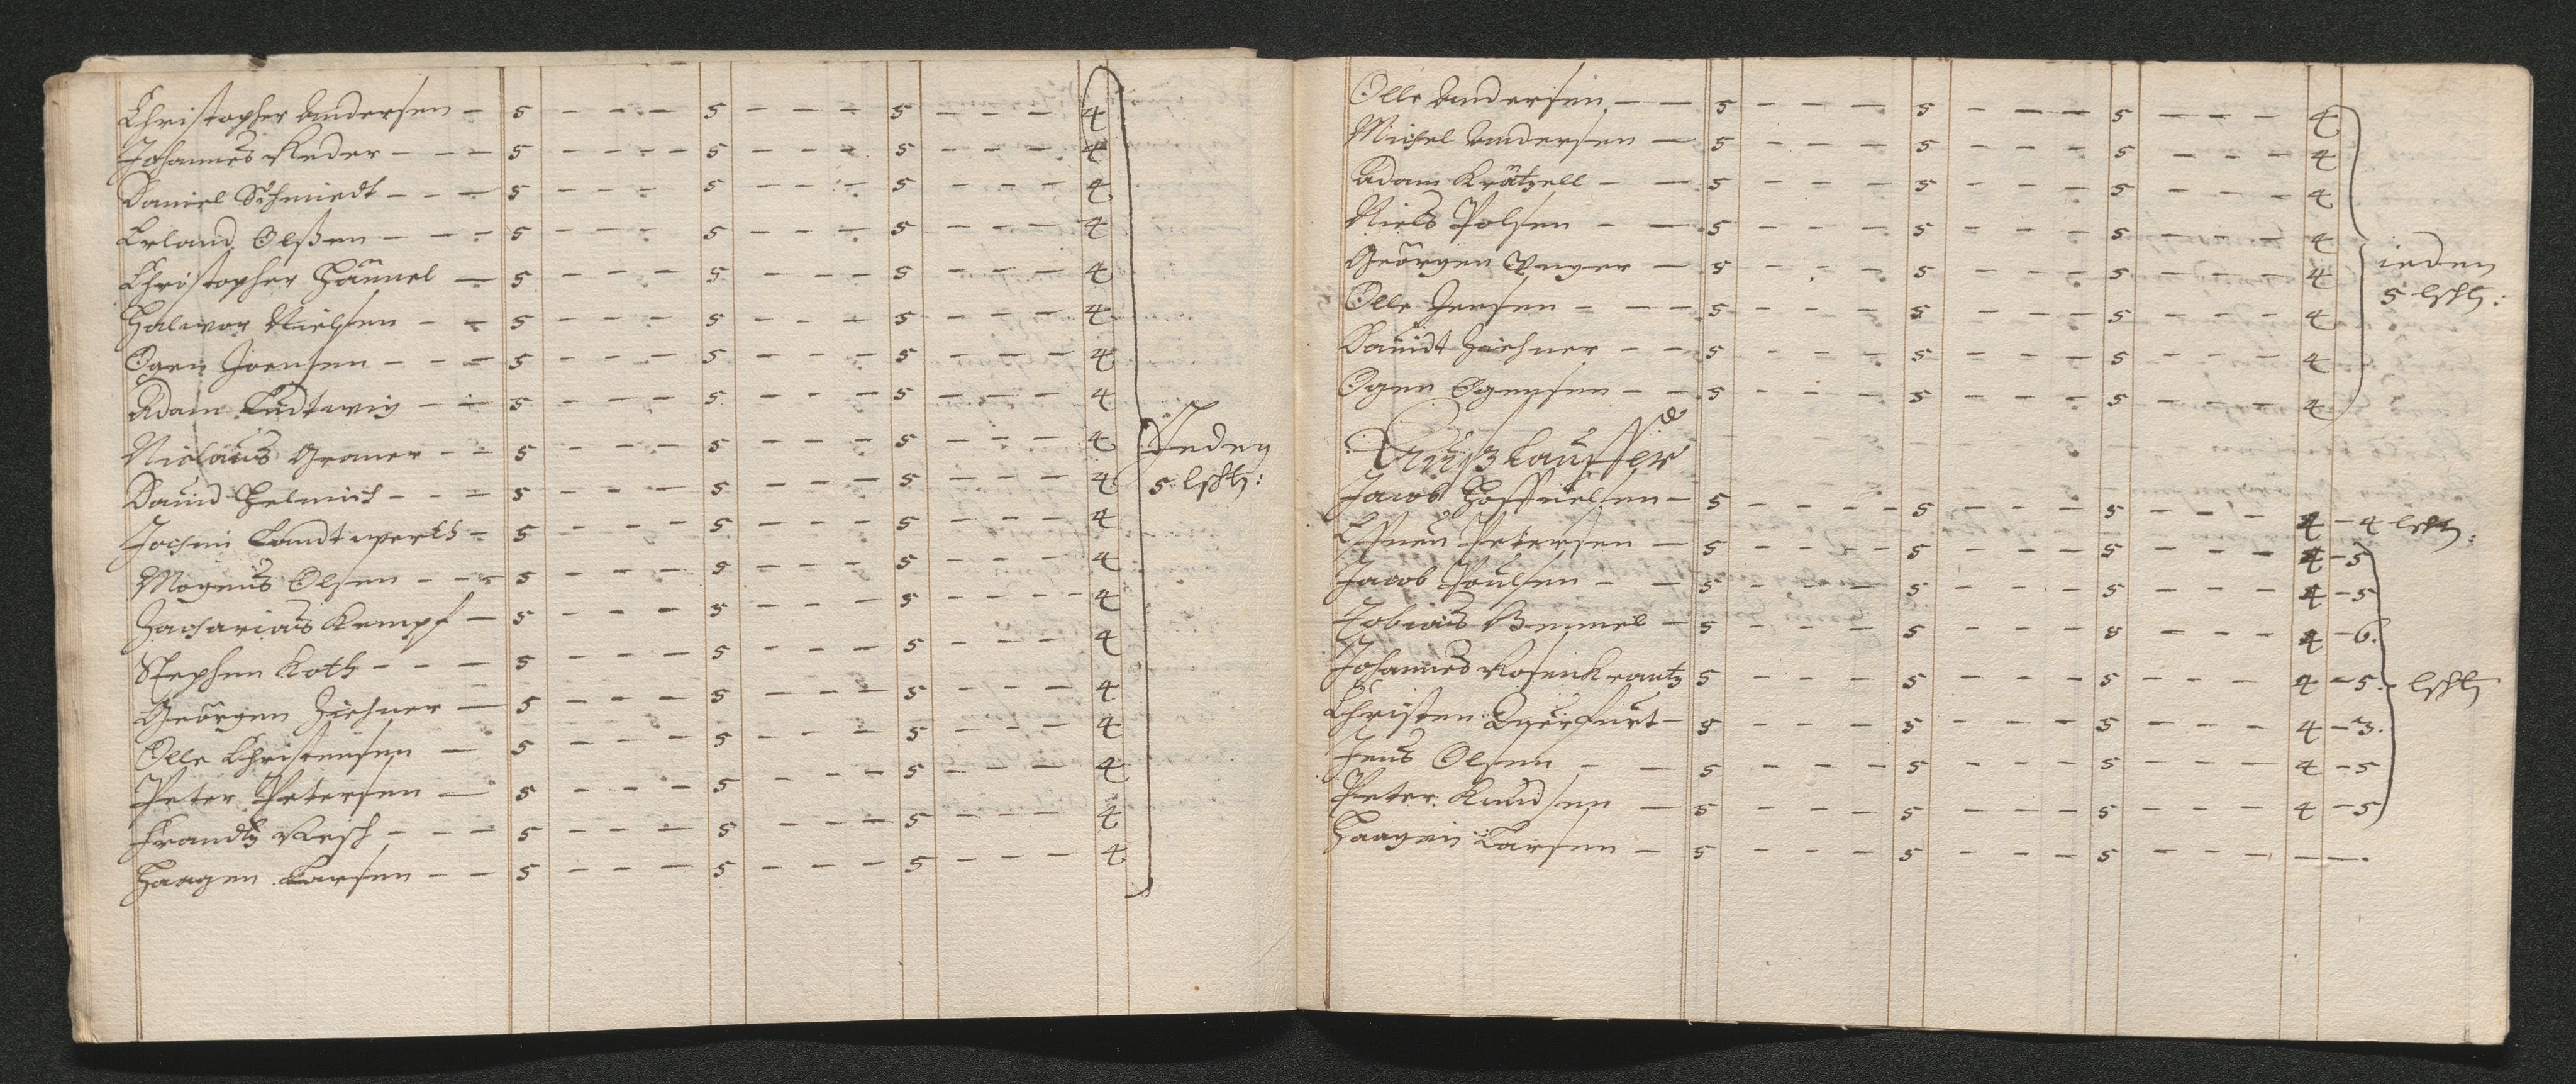 Christopher Andersen - 5 - - - 5 - - - 5 - - - 4
Johannes Reder - - - 5 - - - 5 - - - 5 - - - 4
Daniel Schmiedt - - - 5 - - - 5 - - - 5 - - - 4
Erland Olßen - - - 5 - - - 5 - - - 5 - - - 4
Christopher Hännel - 5 - - - 5 - - - 5 - - - 4
Halwor Nielsen - - 5 - - - 5 - - - 5 - - - 4
Ogen Joensen - - - 5 - - - 5 - - - 5 - - - 4
Adam Ludtwig - - 5 - - - 5 - - - 5 - - - 4
Niclaus Graner - - 5 - - - 5 - - - 5 - - - 4
Jeden
David Helmich - - - 5 - - - 5 - - - 5 - - - 4
5 lsch℔:
Jochim Landtwerth - 5 - - - 5 - - - 5 - - - 4
Mogens Olsen - - - 5 - - - 5 - - - 5 - - - 4
Zacharias Kempf - 5 - - - 5 - - - 5 - - - 4
Stephen Koth - - - 5 - - - 5 - - - 5 - - - 4
Geörgen Ziehner - 5 - - - 5 - - - 5 - - - 4
Olle Christensen - 5 - - - 5 - - - 5 - - - 4
Peter Petersen - 5 - - - 5 - - - 5 - - - 4
Frandtz Resch - - - 5 - - - 5 - - - 5 - - - 4
Haagen Larsen - - 5 - - - 5 - - - 5 - - - 4
Olle Andersen - - 5 - - - 5 - - - 5 - - - 4
Michel Andersen - 5 - - - 5 - - - 5 - - - 4
Adam Krätzell - - 5 - - - 5 - - - 5 - - - 4
Niels Polsen - - 5 - - - 5 - - - 5 - - - 4
Geörgen Unger - 5 - - - 5 - - - 5 - - - 4
ieden
Olle Jensen - - - 5 - - - 5 - - - 5 - - - 4
5 lsch℔:
Davidt Ziehner - - 5 - - - 5 - - - 5 - - - 4
Ogen Ogensen - - 5 - - - 5 - - - 5 - - - 4
Jacob Hoffnielsen - 5 - - - 5 - - - 5 - - - 4 - 4 lsch℔:
Petersen - 5 - - - 5 - - - 5 - - - 4 - 5
Jacob Poulsen - - 5 - - - 5 - - - 5 - - - 4 - 5
Tobias Bemmel - 5 - - - 5 - - - 5 - - - 4 - 6.
Johannes Rosenkrantz 5 - - - 5 - - - 5 - - - 4 - 5. lsch℔
Christen Querfurt - 5 - - - 5 - - - 5 - - - 4 - 3.
Jens Olsen - - 5 - - - 5 - - - 5 - - - 4 - 5
Peter Knudsen - 5 - - - 5 - - - 5 - - - 4 - 5
Haagen Larsen - 5 - - - 5 - - - 5 - - - - -.